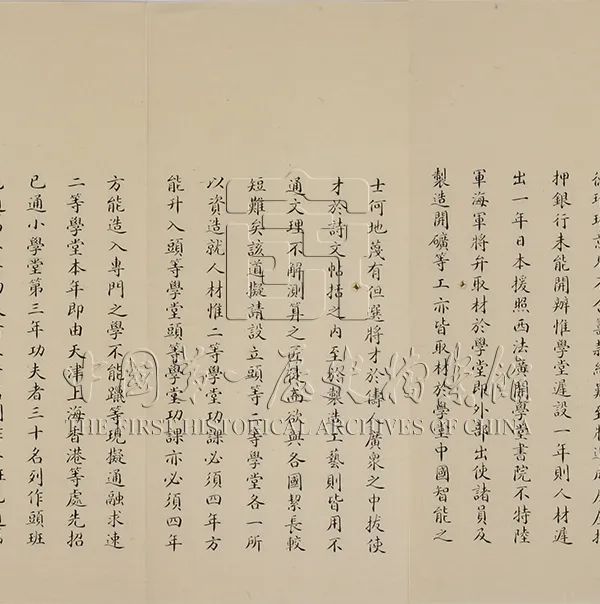 押銀行未能開辦惟學堂遲設一年則人材遲
出一年日本援照西法廣開學堂書院不特陸
軍海軍將弁取材於學堂即外部出使諸員及
製造開礦等工亦皆取材於學堂中國智能之
士何地蔑有但選將才於儔人廣衆之中拔使
才於詩文帖括之內至於製造工藝則皆用不
通文理不解測算之匠徒而欲與各國絜長較
短難矣該道擬請設立頭等二等學堂各一所
以資造就人材惟二等學堂功課必須四年方
能升入頭等學堂頭等學堂功課亦必須四年
方能造入專門之學不能躐等現擬通融求速
二等學堂本年即由天津上海香港等處先招
已通小學堂第三年功夫者三十名列作頭班
中國第一歷史檔案館
THE FIRST HISTORICAL ARCHIVES OF CHINA